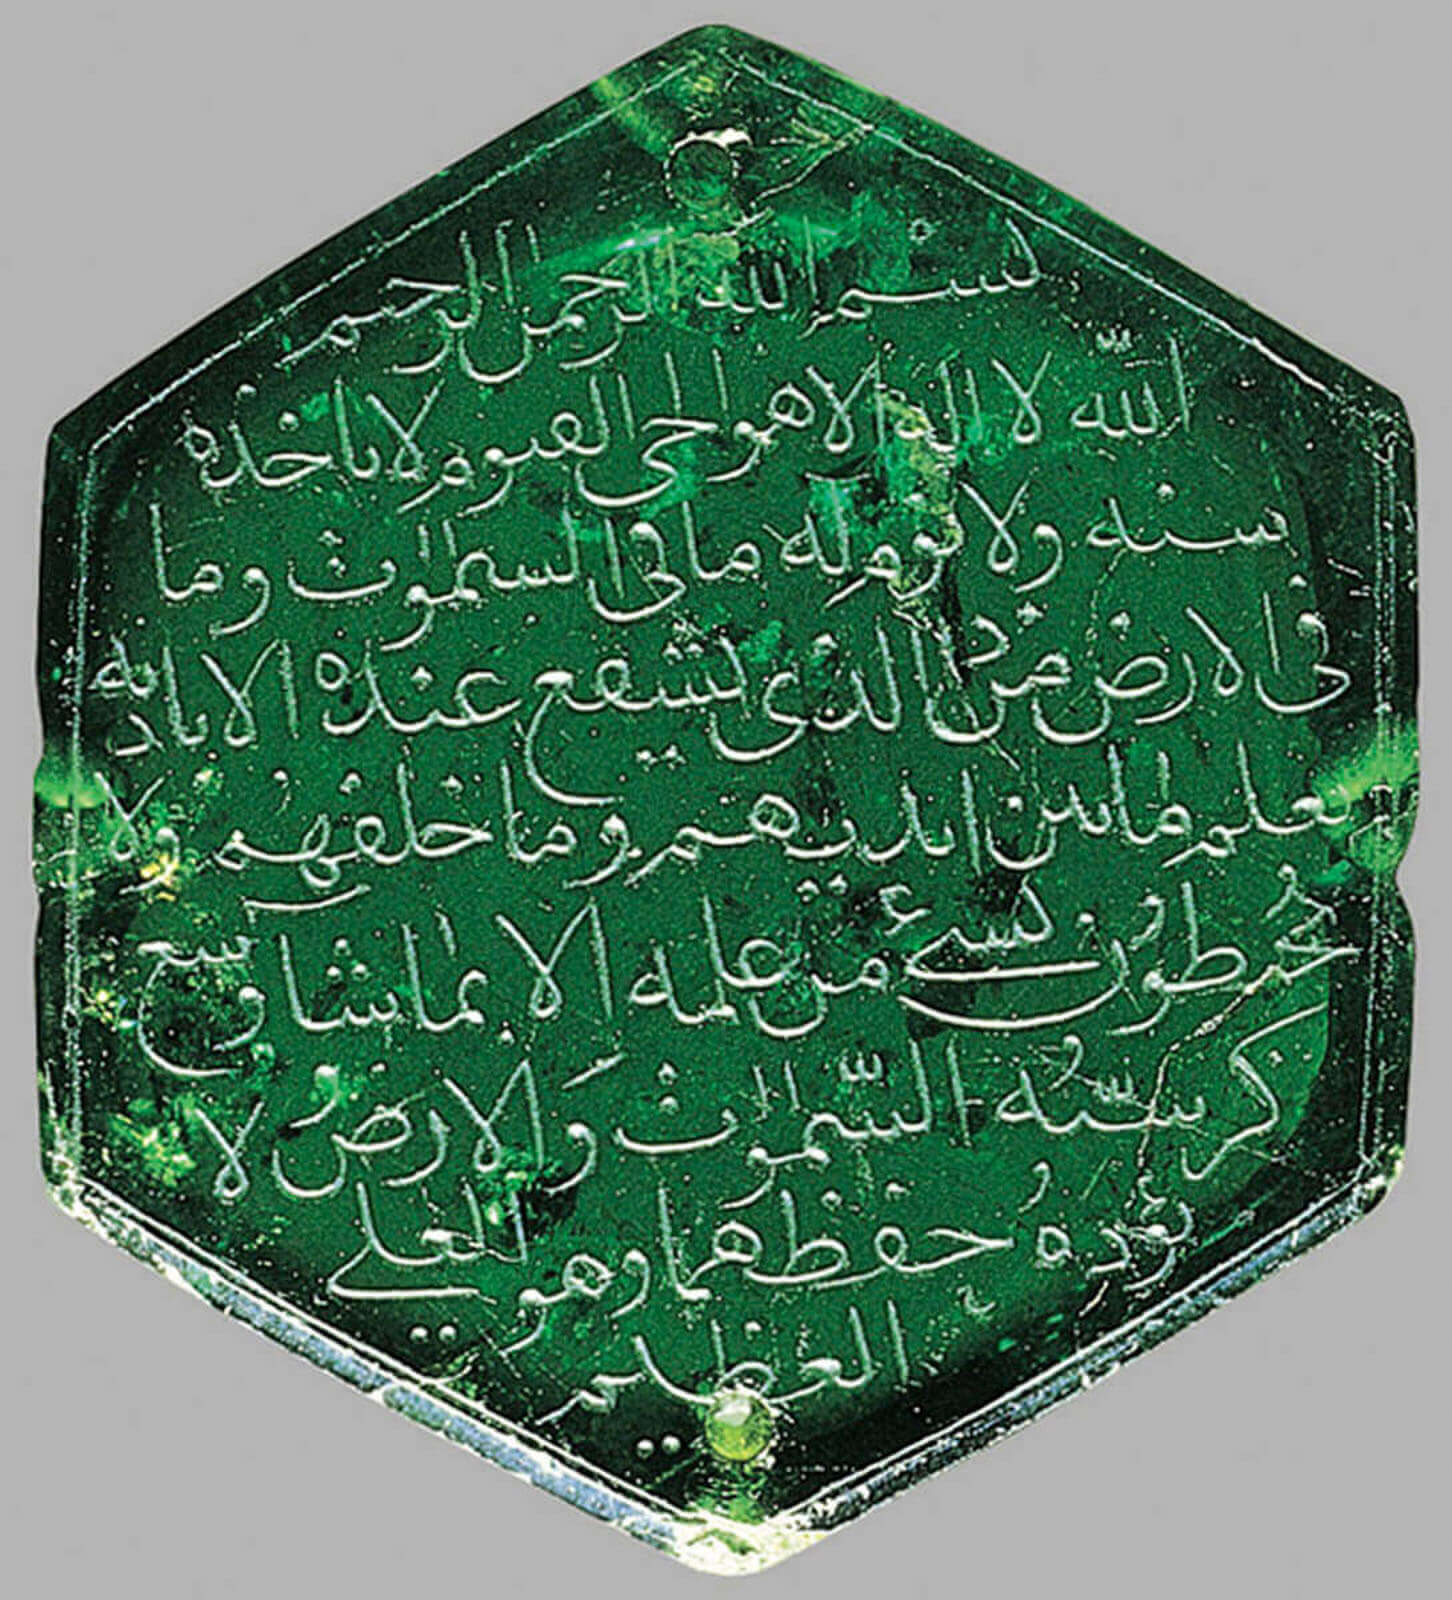 بسم الله الرحمن الرحيم
الله لا اله الا هو الحى القيوم لا تاخذه
سنه ولا نوم له ما فى السموات وما
فى الارض من ذا الذى يشفع عنده الا باذنه
يعلم ما بين ايديهم وما خلفهم ولا
يحيطون بشىء من علمه الا بما شا وسع
كرسيّه السّموات والارض ولا
يؤده حفظهما وهو العلي
العظيم